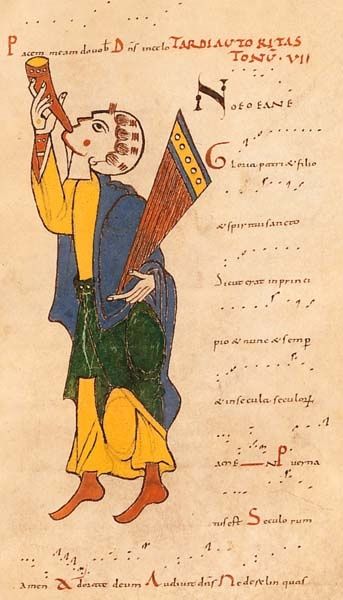 Pacem meam do vob Dns in celo TARDI AUTORITAS
TONU. VII
NOEOEANE
Gloria patri & filio
& spiritui sancto
Sicut erat in princi
pio & nunc & semp
& in secula seculoꝝ
ame N Puer na
tus est Seculorum
amen Adorate deum Audiuit dns Ne